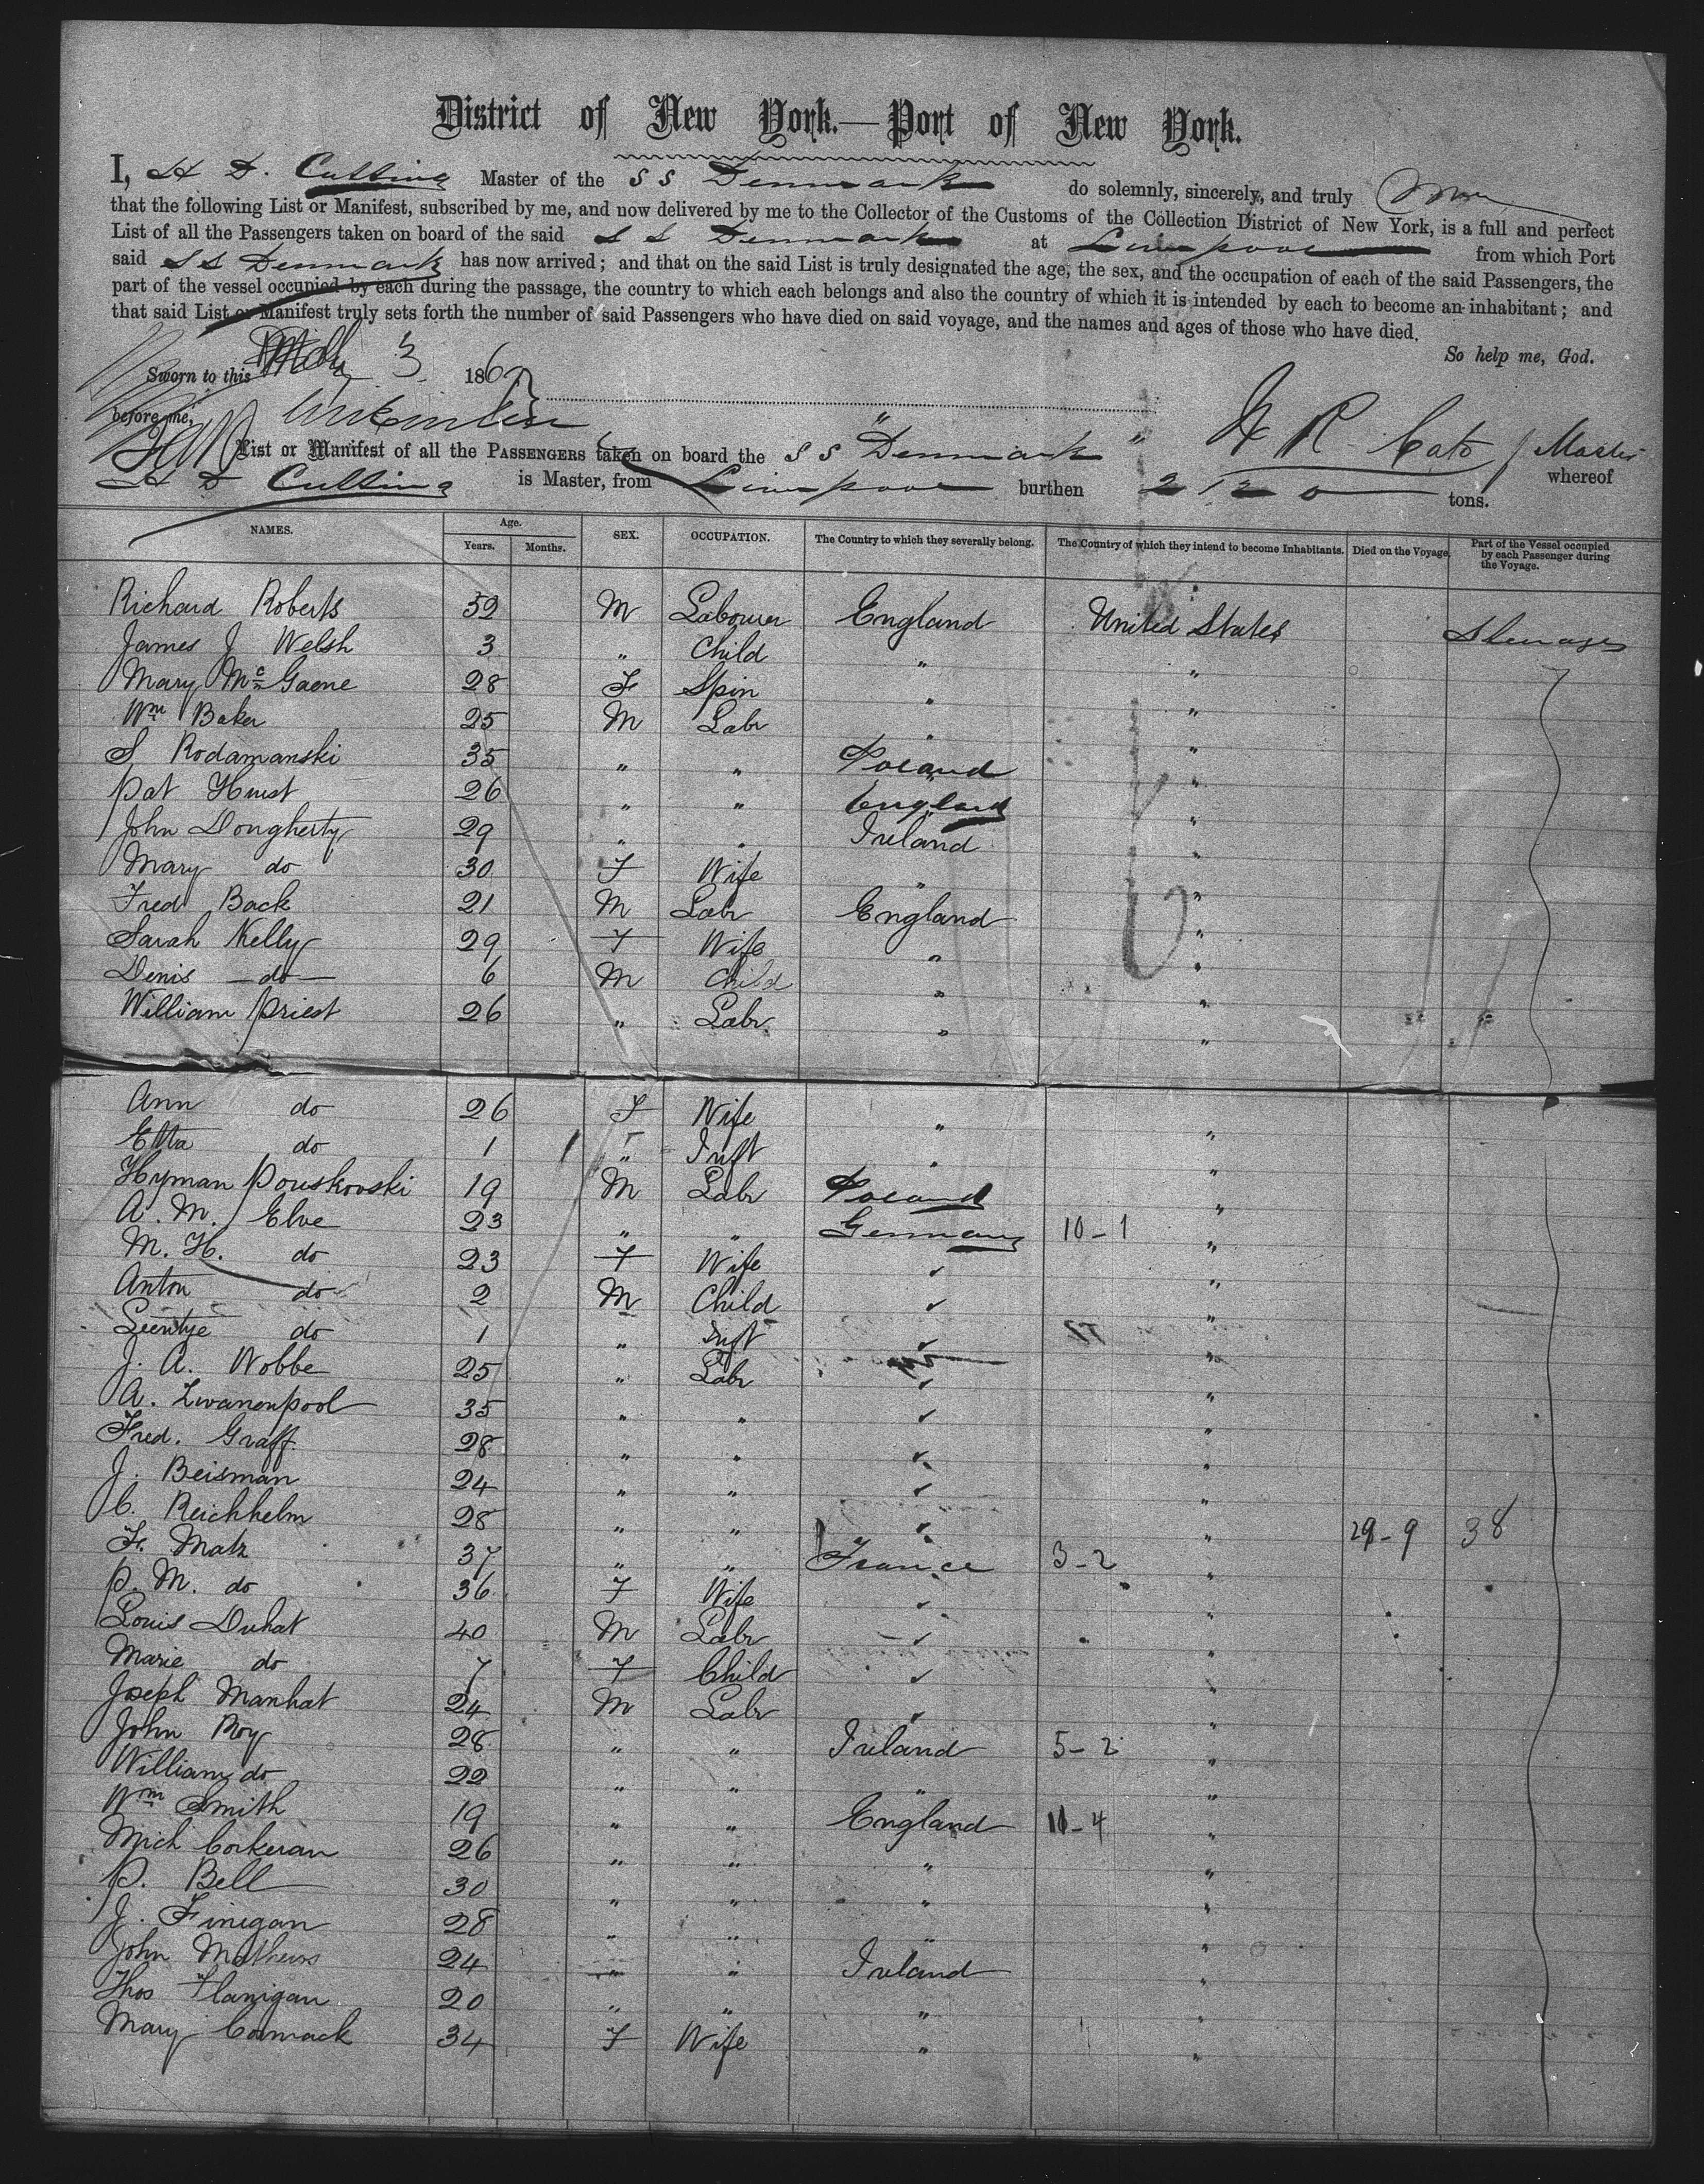 District of New York.—Port of New York.
I, H D. Cutting Master of the S S Denmark do solemnly, sincerely, and truly
that the following List or Manifest, subscribed by me, and now delivered by me to the Collector of the Customs of the Collection District of New York, is a full and perfect
List of all the Passengers taken on board of the said S S Denmark at Liverpool from which Port
said S S Denmark has now arrived; and that on the said List is truly designated the age, the sex, and the occupation of each of the said Passengers, the
part of the vessel occupied by each during the passage, the country to which each belongs and also the country of which it is intended by each to become an inhabitant; and
that said List or Manifest truly sets forth the number of said Passengers who have died on said voyage, and the names and ages of those who have died.
So help me, God.
Sworn to this 3 1867
before me,
List or Manifest of all the PASSENGERS taken on board the S S "Denmark"
H D Cutting is Master, from Liverpool burthen tons. Master whereof
NAMES. Age. Years. Months. SEX. OCCUPATION. The Country to which they severally belong. The Country of which they intend to become Inhabitants. Died on the Voyage. Part of the Vessel occupied by each Passenger during the Voyage.
Richard Roberts 52 M Labourer England United States Steerage
James J Welsh 3 " Child " "
Mary Mc Gaene 28 F Spin " "
Wm Baker 25 M Labr " "
S Rodamanski 35 " " Poland "
Pat Hurst 26 " " England "
John Dougherty 29 " " Ireland "
Mary do 30 F Wife " "
Fred Back 21 M Labr England "
Sarah Kelly 29 F Wife " "
Denis do 6 M Child " "
William Priest 26 " Labr " "
Ann do 26 F Wife " "
Etta do 1 " Inft " "
Hyman Pouskovski 19 M Labr Poland "
A. M. Elve 23 " " Germany 10-1 "
M. H. do 23 F Wife ✓ "
Anton do 2 M Child ✓ "
Leentje do 1 " Inft ✓ "
J. A. Wobbe 25 " Labr ✓ "
A. Zwanenpool 35 " " ✓ "
Fred. Graff 28 " " ✓ "
J. Beisman 24 " " ✓ "
C. Reichhelm 28 " " ✓ " 29-9 38
F. Matz 37 " " France 3-2 "
P. M. do 36 F Wife ✓ "
Louis Duhat 40 M Labr ✓ "
Marie do 7 F Child ✓ "
Joseph Manhat 24 M Labr ✓ "
John Roy 28 " " Ireland 5-2 "
William do 22 " " " "
Wm Smith 19 " " England 11-4 "
Mich Corkeran 26 " " " "
P. Bell 30 " " " "
J. Finigan 28 " " " "
John Mathews 24 " " Ireland "
Thos Flanigan 20 " " " "
Mary Cormack 34 F Wife " "